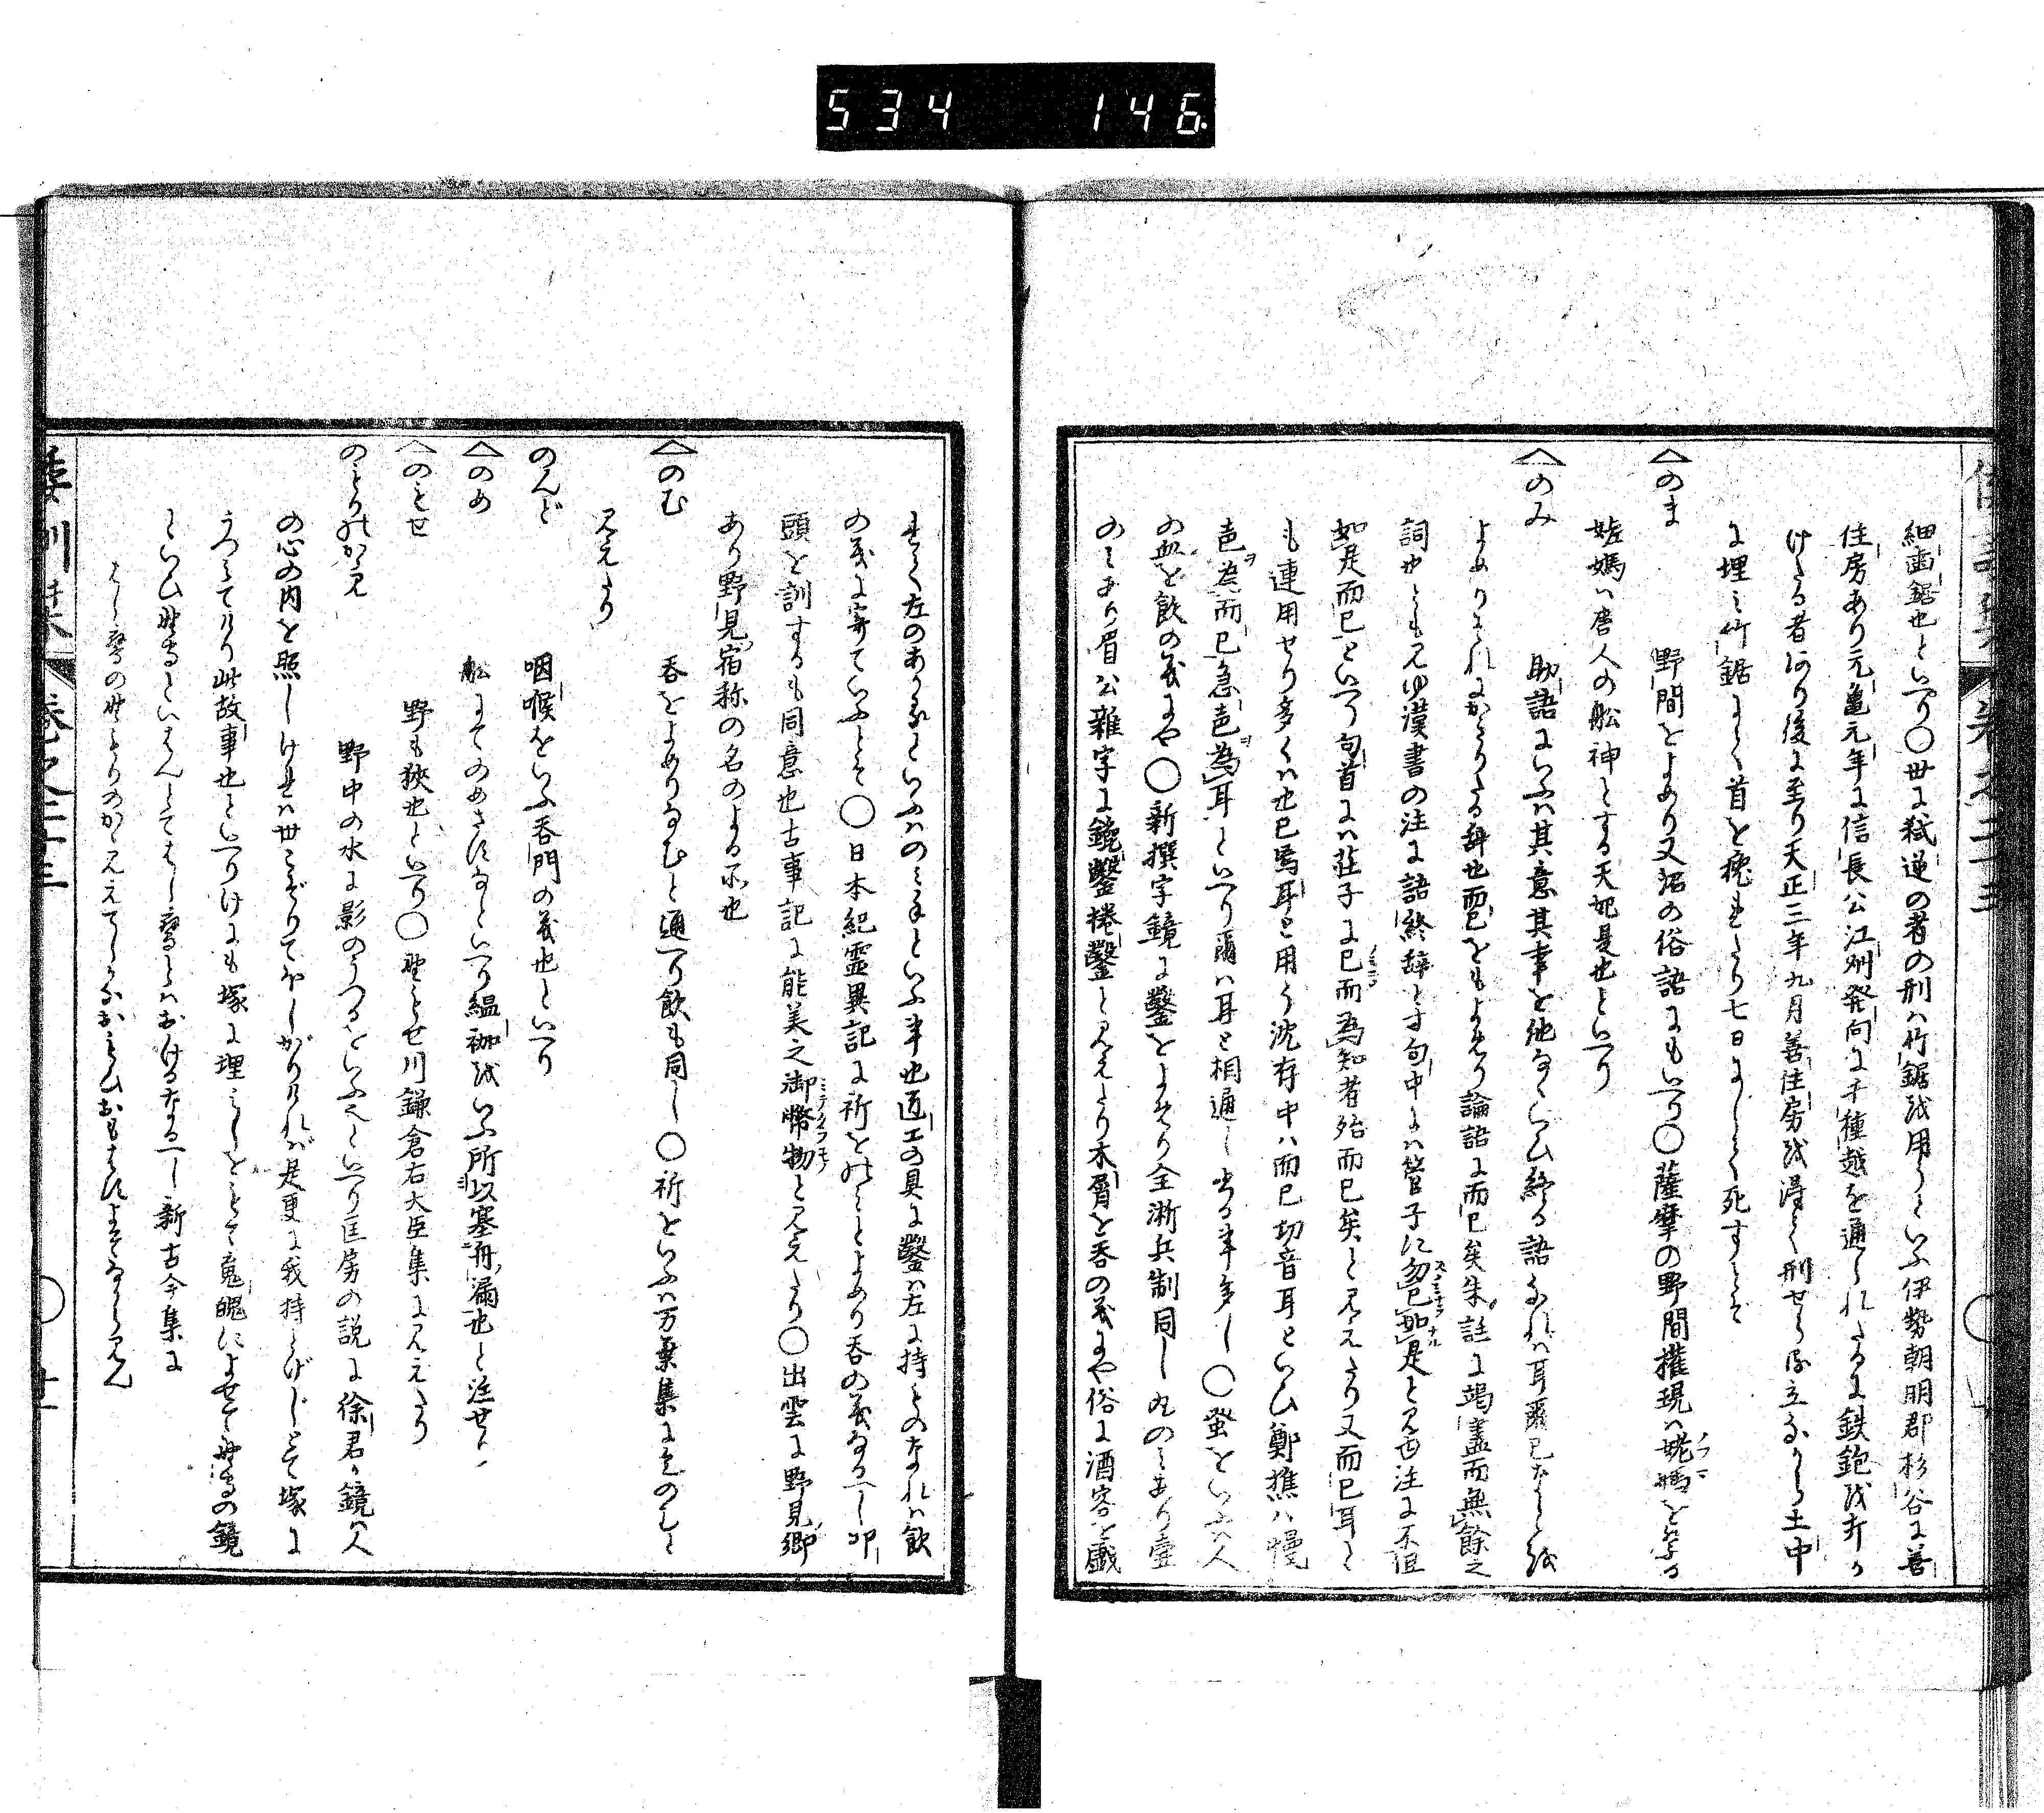 534 146
細歯鋸也といへり〇世に弑逆の者の刑ハ竹鋸を用うといふ伊勢朝明郡杉谷に善
住房あり元亀元年に信長公江州発向に千種越を通られたるに鉄鉋を打か
けたる者あり後に至り天正三年九月善住房を得て刑せらる立なから土中
に埋ミ竹鋸にて首を挽れたり七日にして死すとそ
のま 野間をよめり又沼の俗語にもいへり〇薩摩の野間権現ハ姥媽を祭る
娘媽ハ唐人の舩神とする天妃是也といへり
のみ 助語にいふハ其意其事を他ならひ終る語なれハ耳爾已なとを
よめりそれにかきりたる辞也而已をもよめり論語に而已矣朱註に竭盡而無餘之
詞也とも見ゆ漢書の注に語終辞とす句中にハ管子に忽已如是と見ゆ注に不但
如是而已といへり句首にハ荘子に已而為知者殆而已矣と見えたり又而已耳と
も連用せり多くハ也已焉耳と用う沈存中ハ而已切音耳といひ鄭樵ハ慢
声為而已急声為耳といへり爾ハ耳と相通し出る事多し〇蚤をいふハ人
の血を飲の義にや〇新撰字鏡に鑿をよめり全淅兵制同し丸のミあり壺
のミあり眉公雑字に鑱鑿捲鑿と見えたり木屑を呑の義にや俗に酒客を戯
れて左のあかるといふハのミ手といふ事也匠工の具に鑿ハ左に持ものなれハ飲
の義に寄ていふとそ〇日本紀霊異記に祈をのミとよめり呑の義なるへし叩
頭を訓するも同意也古事記に能美之御幣物と見えたり〇出雲に野見郷
あり野見宿祢の名のよる所也
のむ 呑をよめりなむと通へり飲も同し〇祈をいふハ万葉集にこひのむと
見えたり
のんど 咽喉をいふ呑門の義也といへり
のめ 舩にてのめさすなといへり緼袽をいふ所以塞舟漏也と注せり
のもせ 野も狭也といへり〇野もせ川鎌倉右大臣集に見えたり
のもりのかゝみ 野中の水に影のうつるをいふ也といへり匡房の説に徐君か鏡ハ人
の心の内を照しけれハ世こぞりてほしがりけれバ是更に我持とげじとて塚に
うつミてけり此故事也といへりけにも塚に埋ミしをもて鬼魄によせて野守の鏡
といひ野守といはんとてはし鷹とハおけるなるへし新古今集に
はし鷹の野もりのかゝみえてしかなおもひおもはすよそなから見ん
倭訓栞 巻之二十三